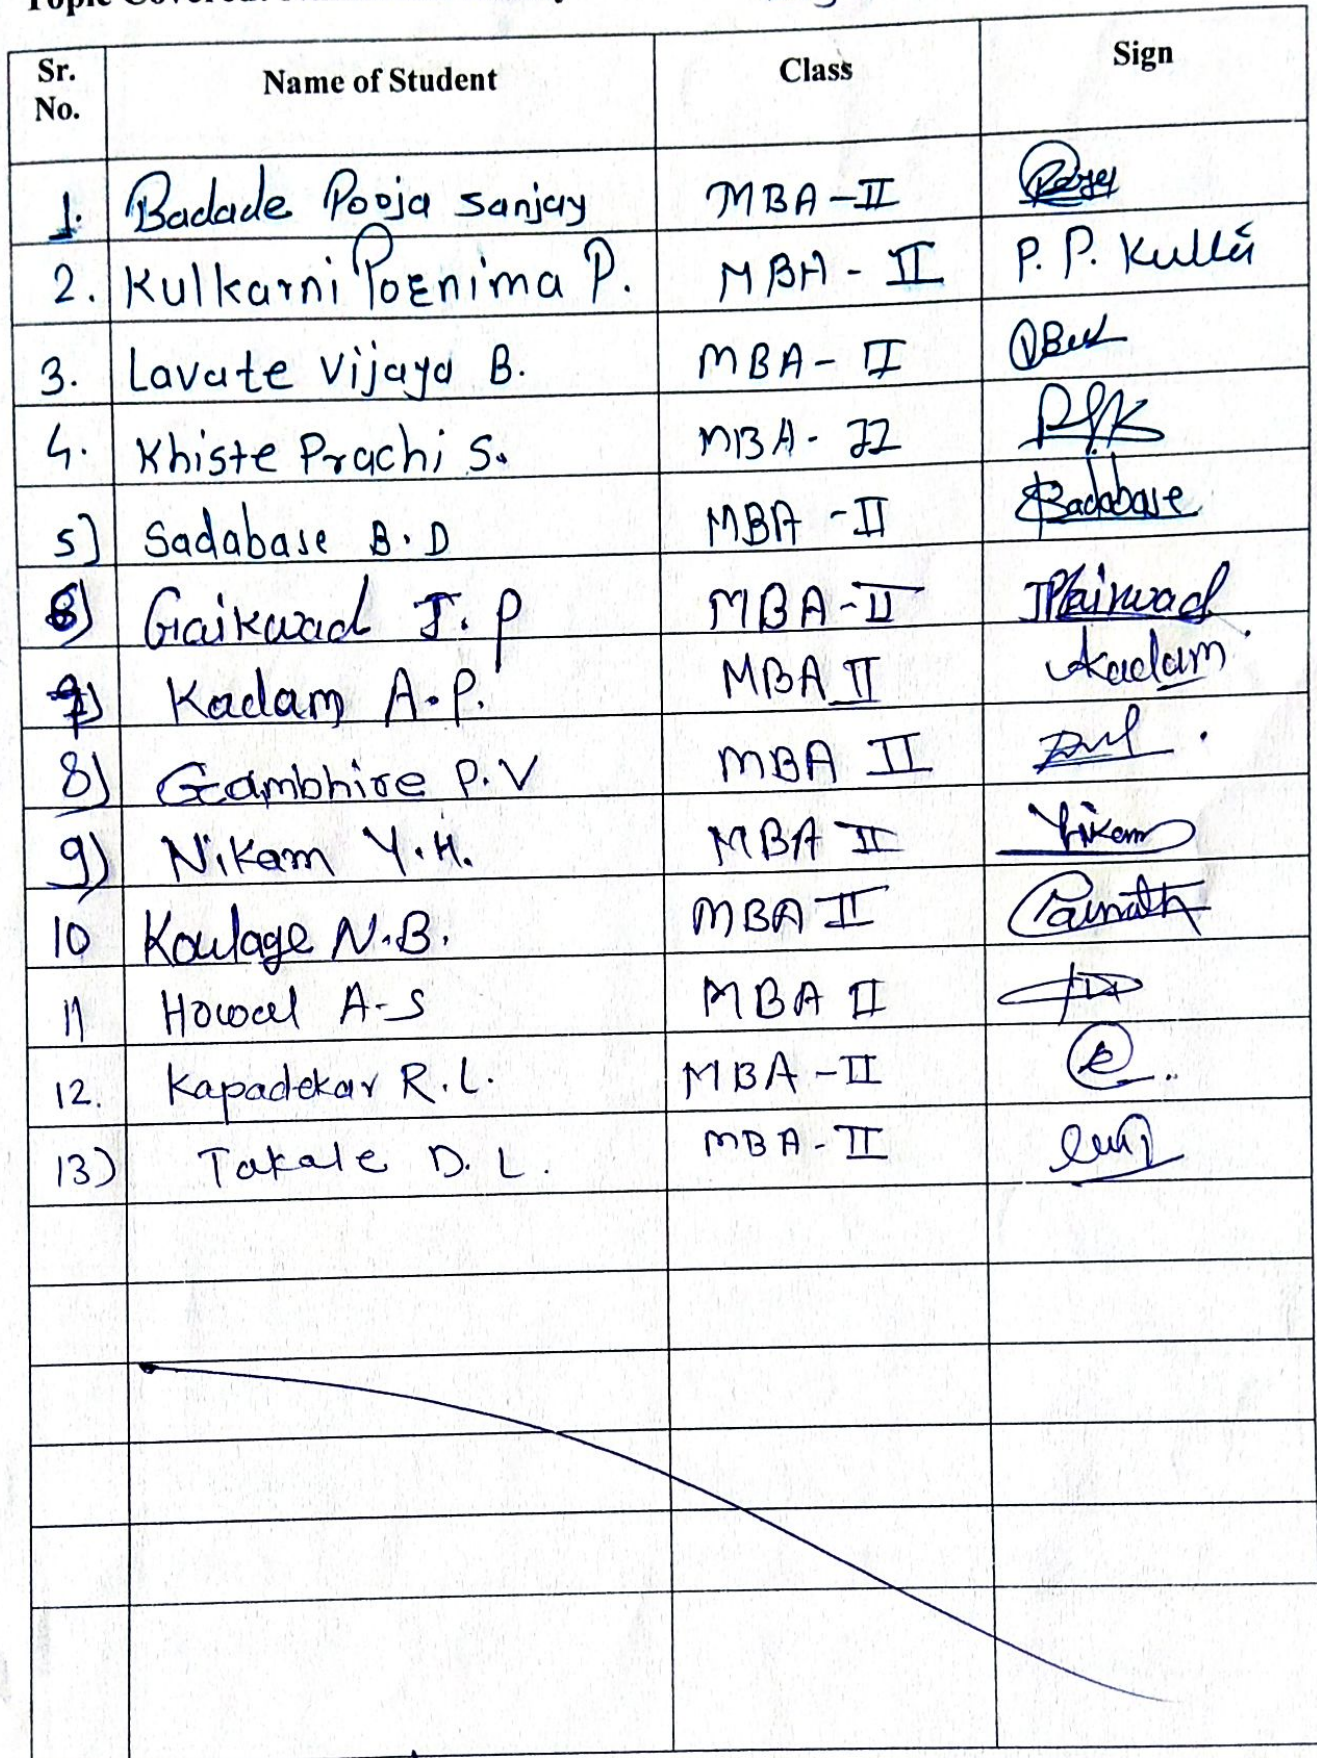 Topic Covered:
Sr. No. Name of Student Class Sign
1. Badade Pooja Sanjay MBA-II
2. Kulkarni Poenima P. MBA-II P. P. Kulkā
3. Lavate Vijaya B. MBA-II
4. Khiste Prachi S. MBA-II PSK
5) Sadabase B.D MBA-II Sadabase
6) Gaikwad J.P MBA-II JPGaikwad
7) Kadam A.P. MBA II Akadam
8) Gambhire P.V MBA II
9) Nikam Y.H. MBA II Nikam
10 Koulage N.B. MBA II
11 Howal A-S MBA II
12. Kapadekar R.L. MBA-II
13) Takale D.L. MBA-II